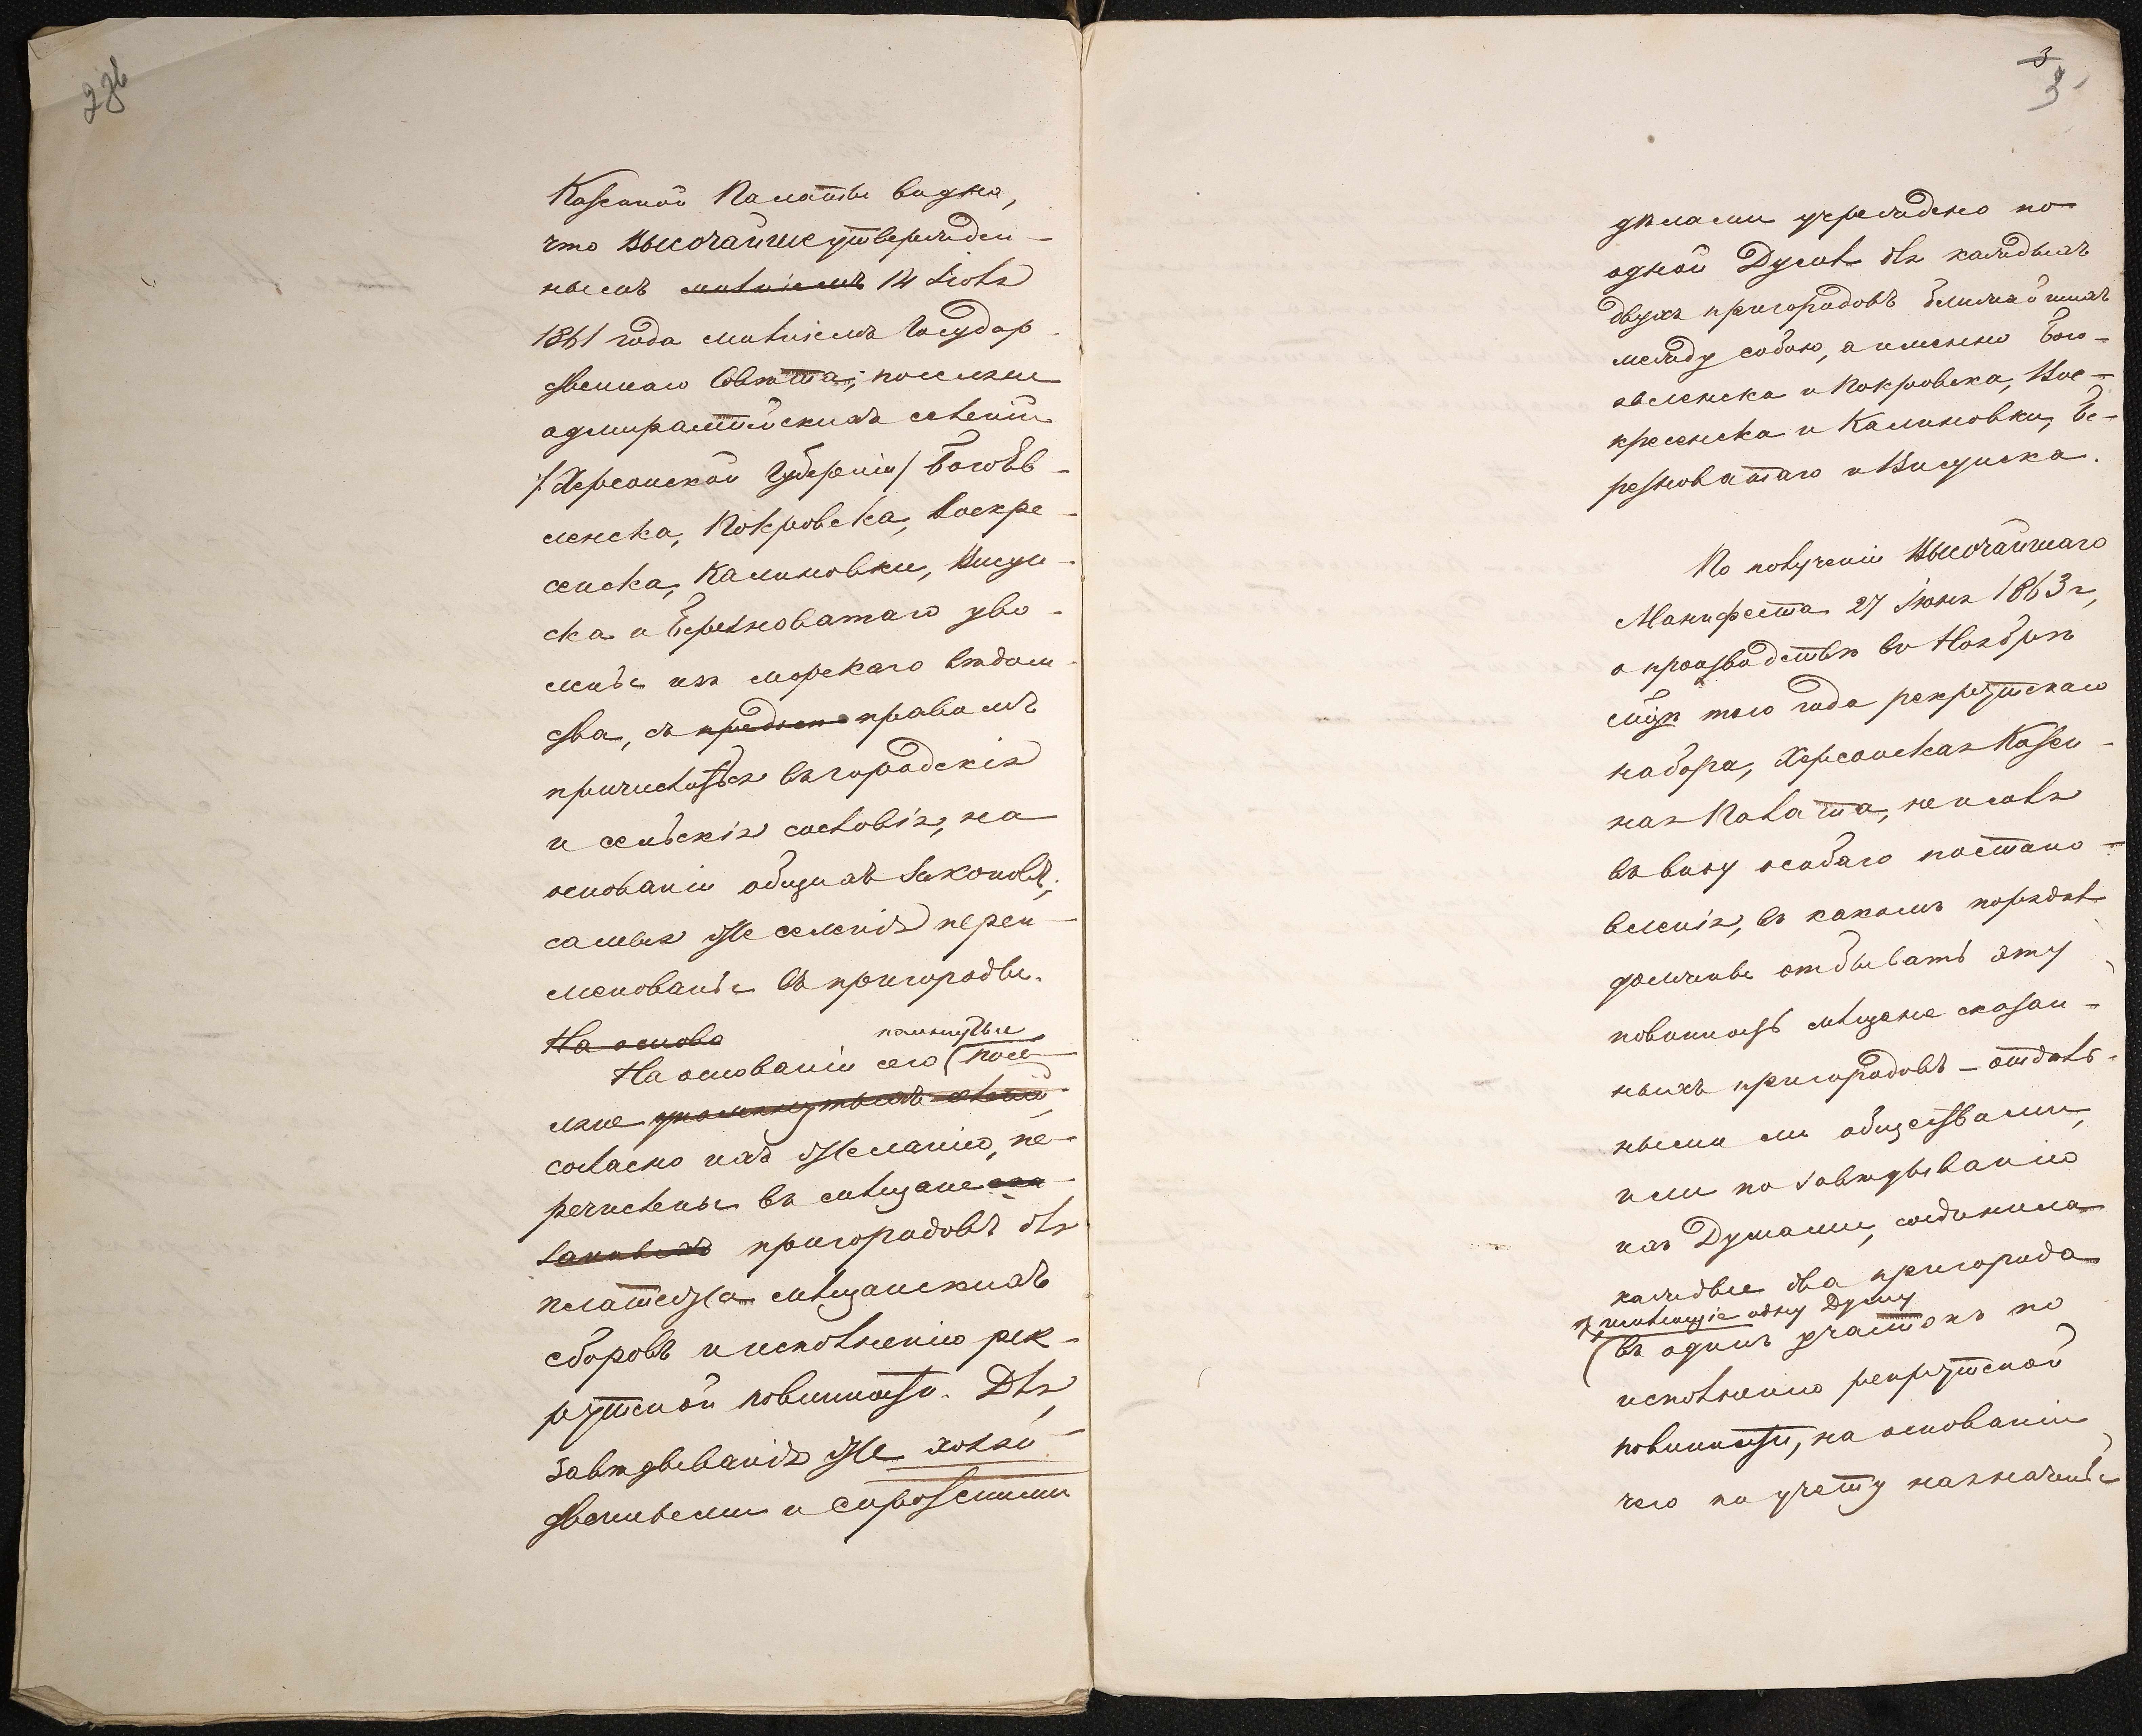 2об
Казенной Палаты видно,
что Высочайше утвержден-
нымъ мнѣніемъ 14 Іюля
1861 года мнѣніемъ Государ-
ственнаго Совѣта, поселяне
адмиралтейскихъ селеній
/Херсонской Губерніи/ Богояв-
ленска, Покровска, Воскре-
сенска, Калиновки, Висун-
ска и Березноватаго уво-
лены изъ морскаго вѣдом-
ства, съ правомъ
причислиться въ городскія
и сельскія сословія, на
основаніи общихъ законовъ;
самыя же селенія переи-
менованы въ пригороды.
На основа
помянутые
На основаніи сего посе-
ляне упомянутыхъ селеній,
согласно ихъ желанію, пе-
речислены въ мѣщане
пригородовъ для
платежа мѣщанскихъ
сборовъ и исполненію рек-
рутской повинности. Для
завѣдыванія же хозяй-
ственными и сиротскими
3
3
дѣлами учреждено по
одной Думѣ для каждыхъ
двухъ пригородовъ ближайшихъ
между собою, а именно Бого-
явленска и Покровска, Вос-
кресенска и Калиновки, Бе-
резноватаго и Висунска.
По полученіи Высочайшаго
Манифеста 27 Іюня 1863 г,
о производствѣ въ Ноябрѣ
м-цѣ того года рекрутскаго
набора, Херсонская Казен-
ная Палата, не имѣя
въ виду особаго постано-
вленія, въ какомъ порядкѣ
должны отбывать эту
повинность мѣщане сказан-
ныхъ пригородовъ – отдѣль-
ными ли обществами,
или по завѣдыванію
ихъ Думами, соединила
каждые два пригорода
имѣющіе одну Думу
въ одинъ участокъ по
исполненію рекрутской
повинности, на основаніи
чего по учету назначены